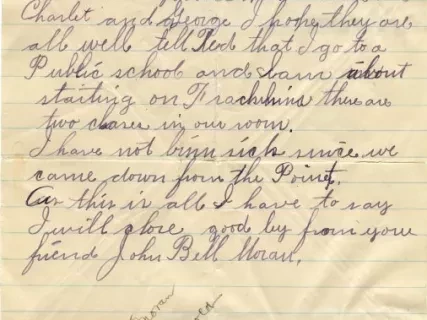 Charlet and George I hope they are
all well tell Ted that I go to a
Public school and I am about
starting on Frachshins there are
two clases in our room.
I have not binn sick since we
came down from the Point.
As this is all I have to say
I will close good by from your
friend John Bell Moran.
Moran
old